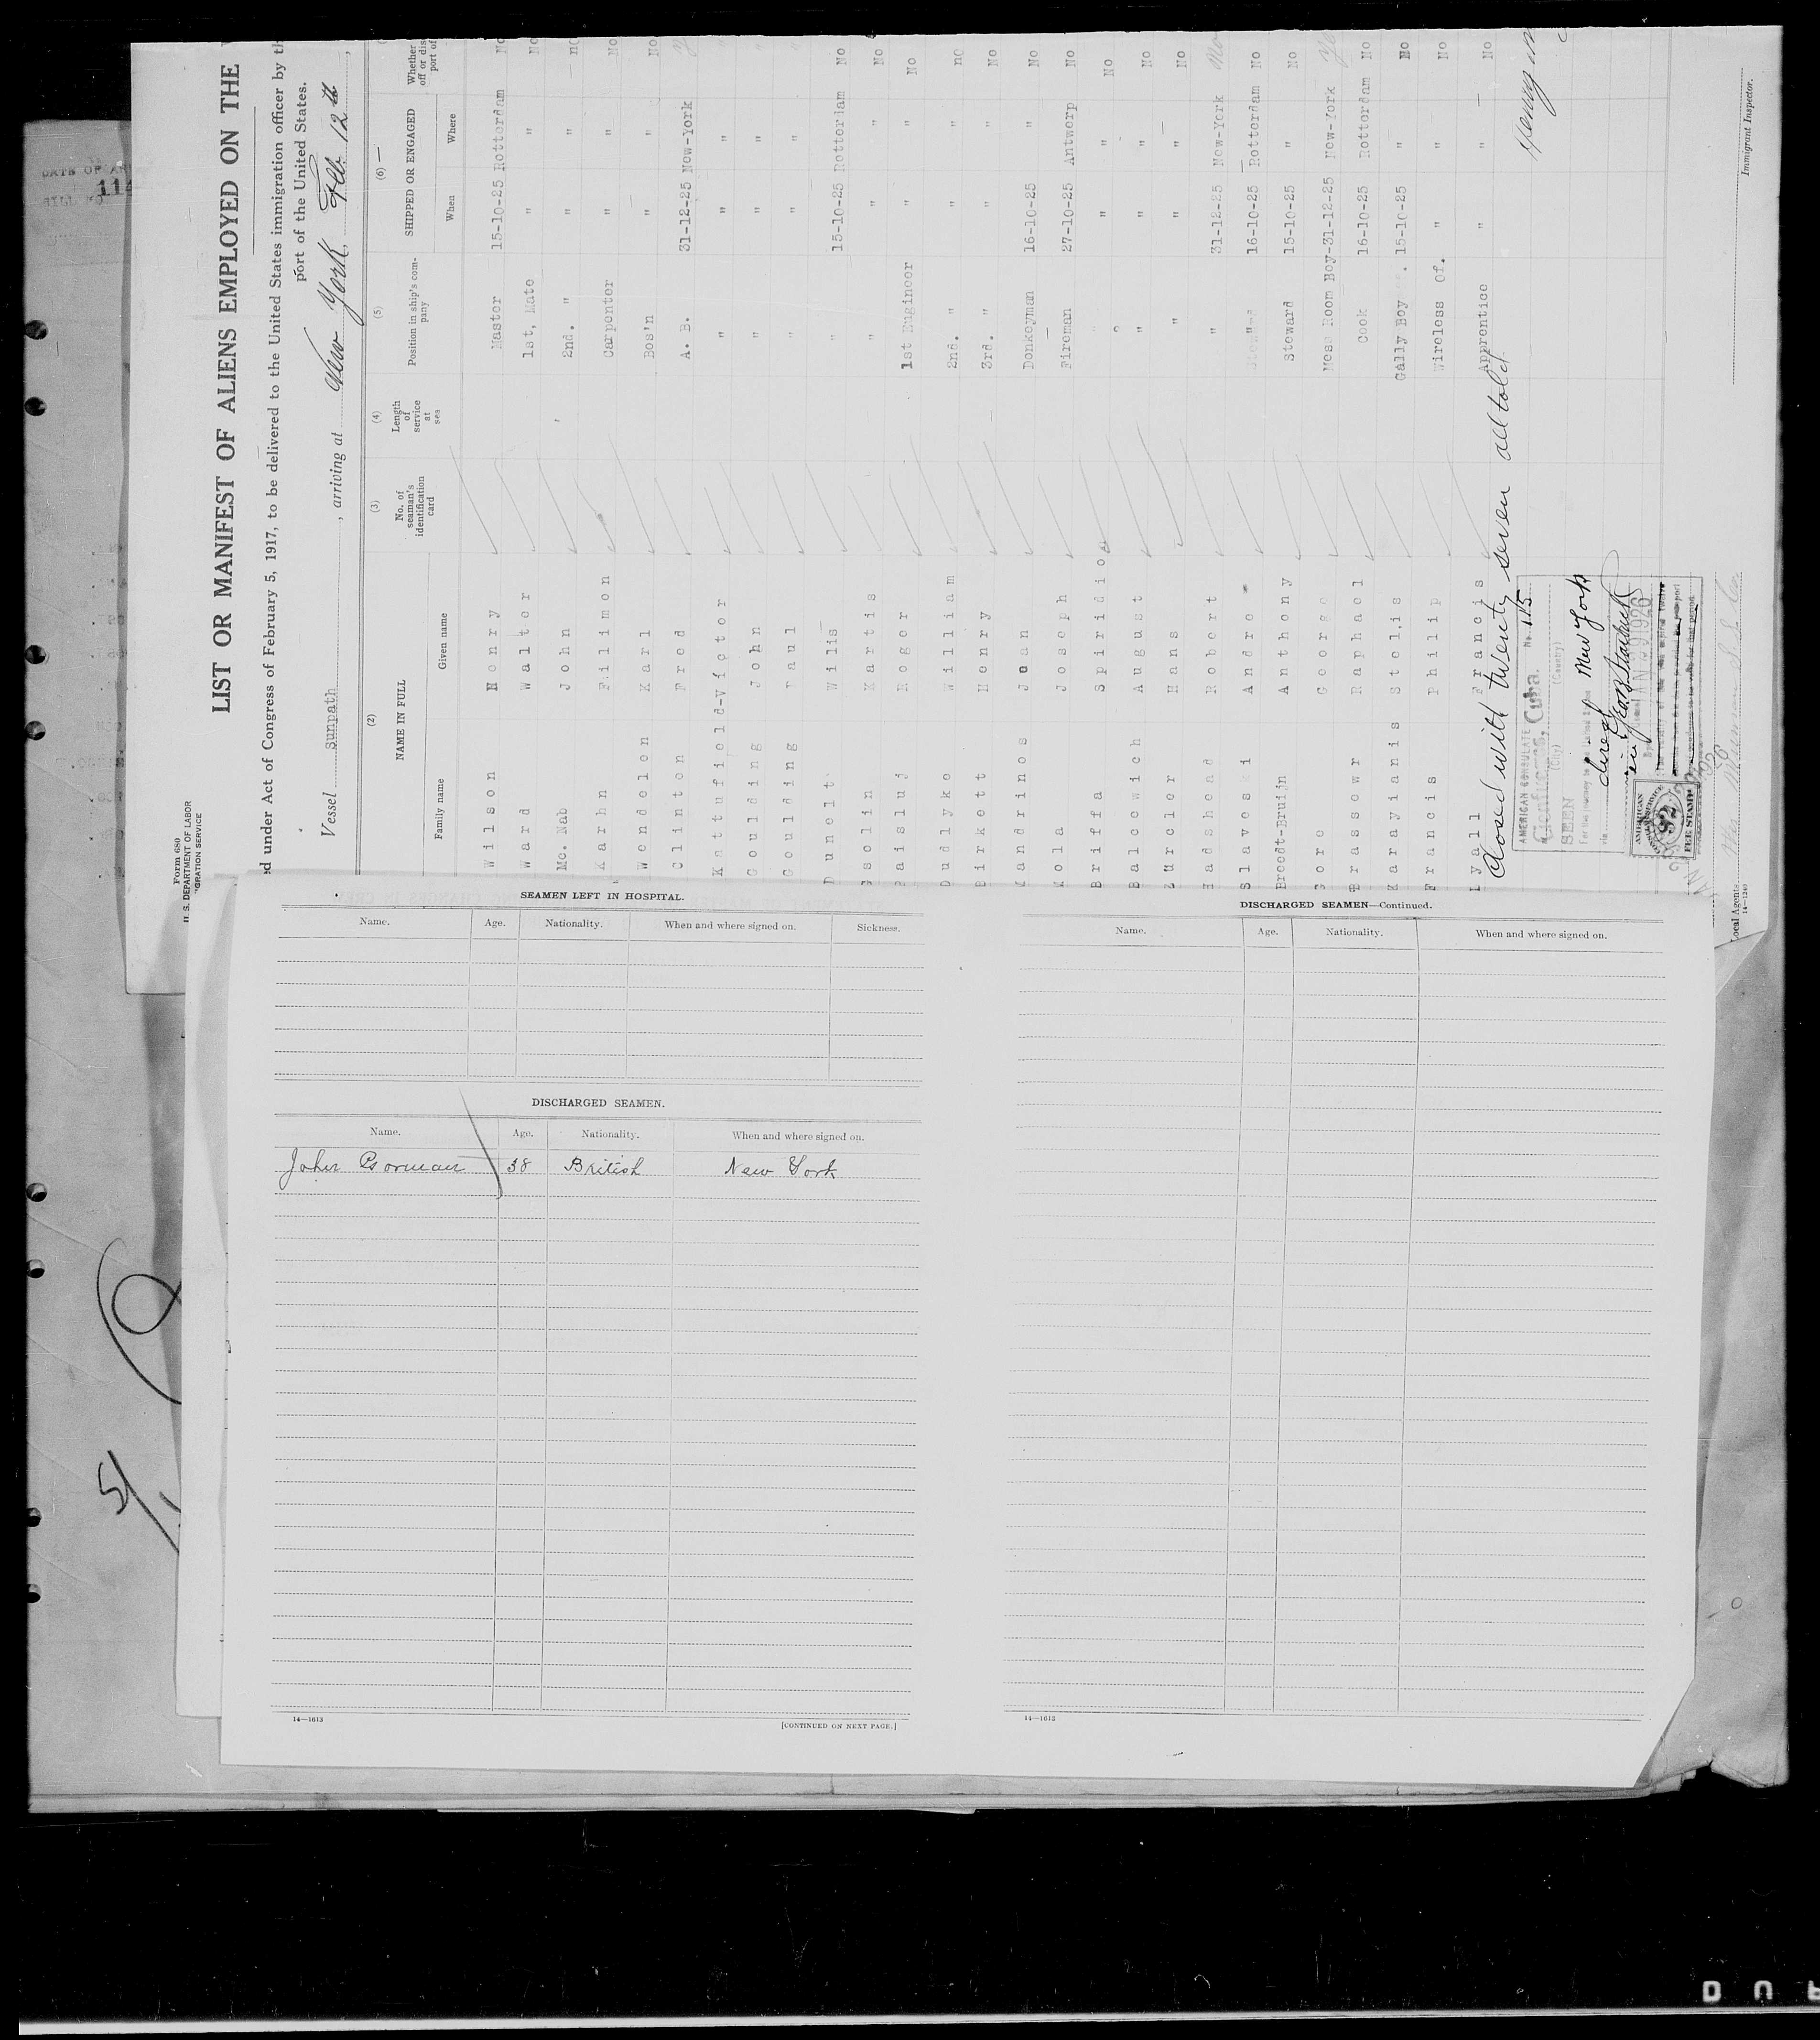 Form 680
U. S. DEPARTMENT OF LABOR
IGRATION SERVICE
LIST OR MANIFEST OF ALIENS EMPLOYED ON THE
ed under Act of Congress of February 5, 1917, to be delivered to the United States immigration officer by th
port of the United States.
Vessel Sunpath, arriving at New York, Feb 12th,
(2) (3) (4) (5) (6)
NAME IN FULL
Family name Given name
No. of seaman's identification card
Length of service at sea
Position in ship's company
SHIPPED OR ENGAGED
When Where
Whether
off or dis
port of
Wilson Henry Master 15-10-25 Rotterdam No
Ward Walter 1st, Mate " " No
Mc. Nab John 2nd. " " " no
Karhn Filimon Carpenter " " No
Wendelen Karl Bos'n " " No
Clinton Fred A. B. 31-12-25 New-York
Kattufield-Victor " " "
Goulding John " " "
Goulding Paul " " "
Dunelt Wilis " 15-10-25 Rotterdam No
Gsolin Martis " " " No
Paisluj Roger 1st Engineer " " No
Dudlyke William 2nd. " " " no
Birkett Henry 3rd. " " " No
Mandrinos Jean Donkeyman 16-10-25 " No
Mola Joseph Fireman 27-10-25 Antwerp No
Briffa Spiridio " " " No
Balcewich August " " " No
Zürcler Hans " " " No
Hadshead Robert " 31-12-25 New-York No
Slaveski Andre 16-10-25 Rotterdam No
Breedt-Bruijn Anthony Steward 15-10-25 " No
Gore George Mess Room Boy-31-12-25 New-York
Brassewr Raphael Cook 16-10-25 Rotterdam No
Karayianis Stelis Gally Boy . 15-10-25 " No
Francis Philip Wireless Of. " " No
Lyall Francis Apprentice " " No
Closed with twenty seven all told
AMERICAN CONSULATE No. 115
Cienfuegos, Cuba.
(City) (Country)
SEEN
New York
direct
AMERICAN
$2
FEE STAMP
Local Agents
14—1240
Immigrant Inspector.
SEAMEN LEFT IN HOSPITAL.
Name. Age. Nationality. When and where signed on. Sickness.
DISCHARGED SEAMEN.
Name. Age. Nationality. When and where signed on.
John Gorman 38 British New York
14—1613 [CONTINUED ON NEXT PAGE.]
DISCHARGED SEAMEN—Continued.
Name. Age. Nationality. When and where signed on.
14—1613